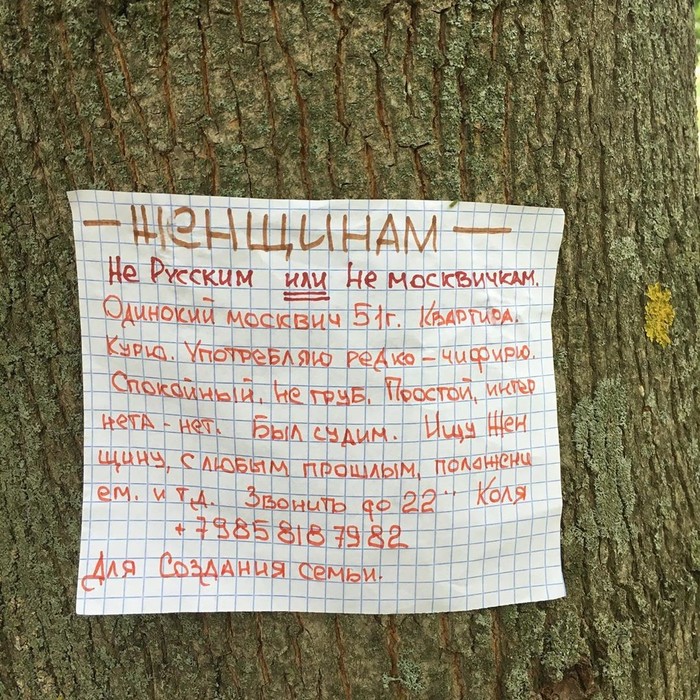 — ЖЕНЩИНАМ —
Не Русским или Не москвичкам.
Одинокий москвич 51г. Квартира.
Курю. Употребляю редко – чифирю.
Спокойный. Не груб. Простой, интер
нета - нет. Был судим. Ищу Жен
щину, с любым прошлым, положени
ем. и т.д. Звонить до 22'' Коля
+79858187982
Для Создания семьи.